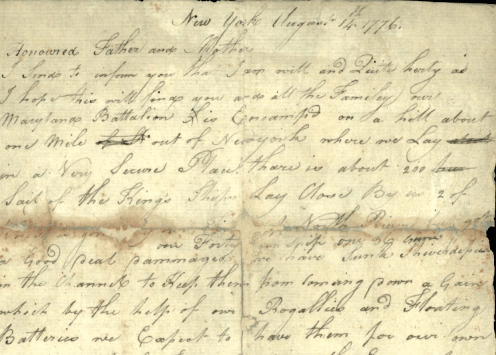 New York August 14th 1776.
Honoured Father and Mother
I Send to inform you tha I am well and Quite herty as
I hope this will find you and all the Familey our
Maryland Battalion Is Encampd on a hill about
one Mile out of Newyork where we Lay
in a Very Secure Place there is about 200
Sail of the Kings Ships Lay Close By us 2 of
our Forts
a Good Deal dammaged we have Sunk
in the Channel to Keep them from Coming down a Gain
which by the help of our Rogallies and Floating
Batteries we Expect to have them for our own